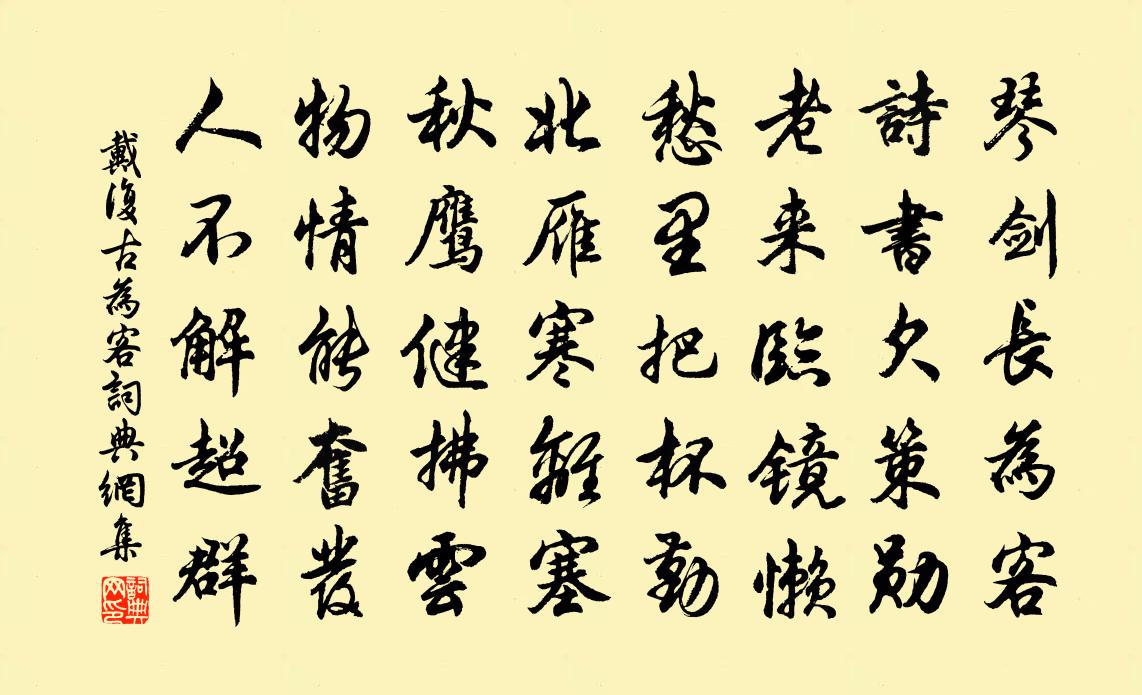 琴剑長為客
詩書欠策勛
老来臨镜懒
愁里把杯勤
北雁寒離塞
秋鹰健拂雲
物情能奮發
人不解超群
戴復古為客詞典網集
詞典网印